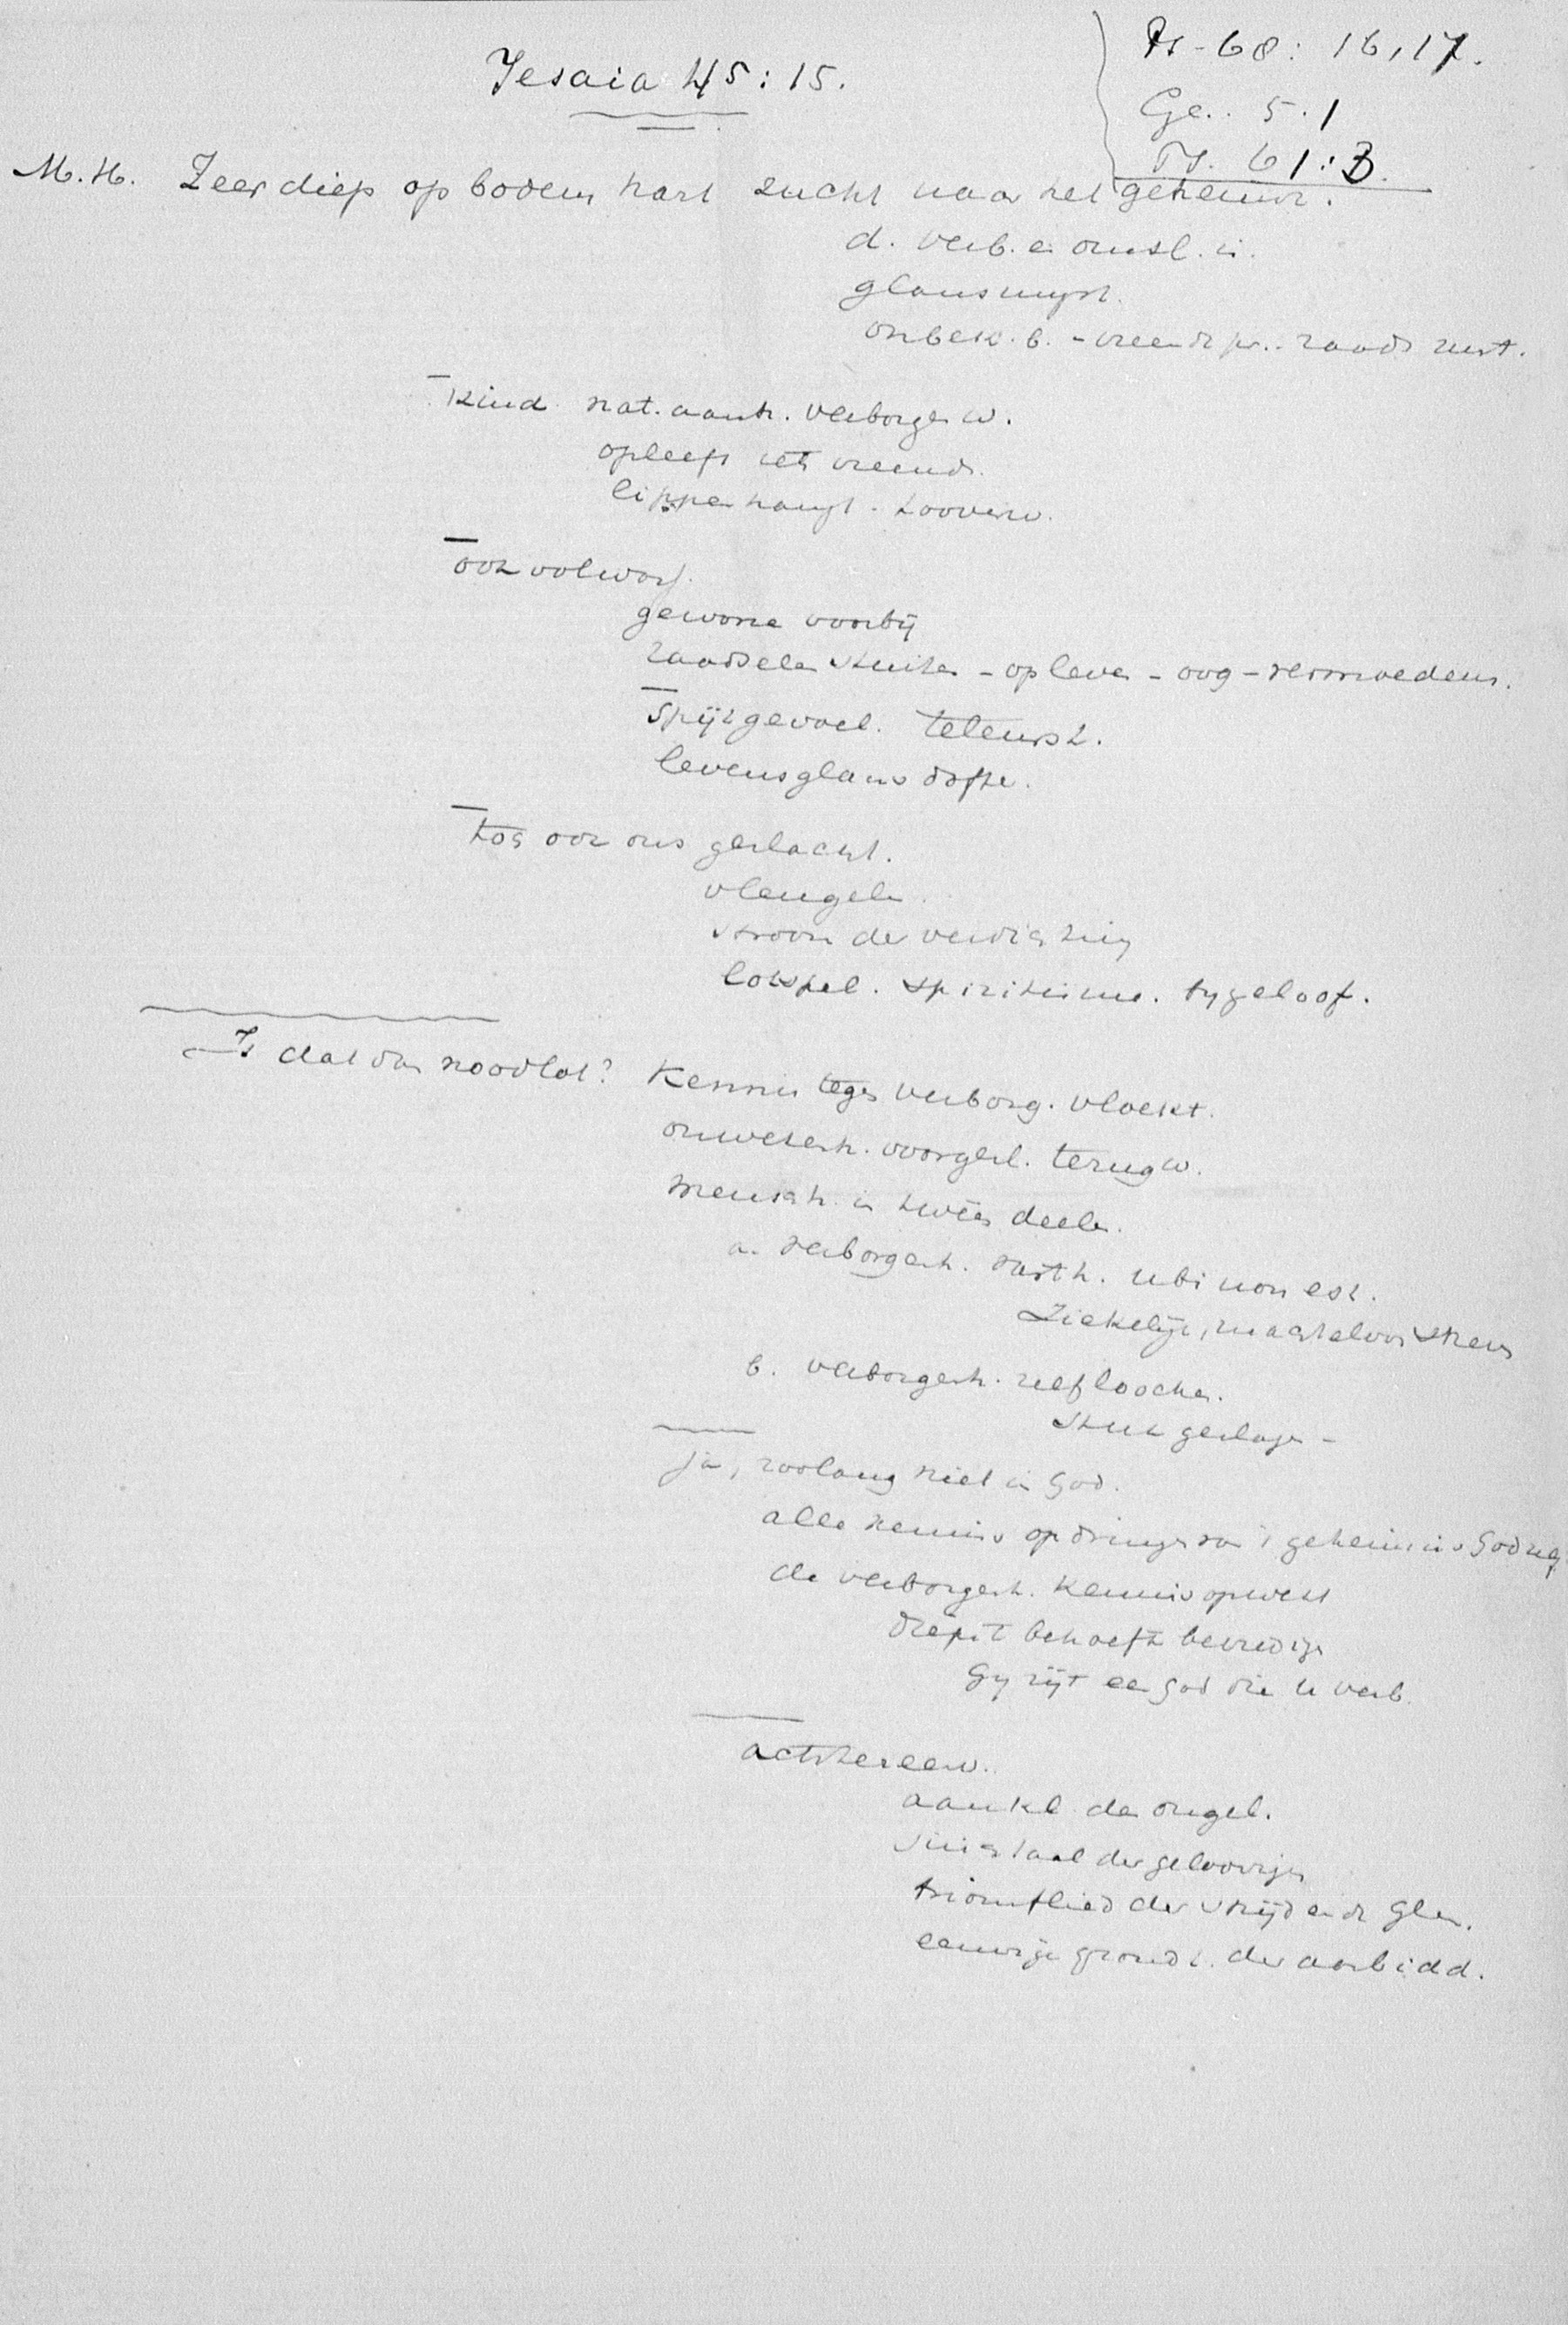 Jesaia 45:15.
Ps-68: 16,17.
Ge.. 5.1
Ps. 61:3.
M.H. Zeer diep op bodem hart zucht naar het geheimz.
d. verb. e. omsl. is.
glans myst.
onbek. b. - vreemde pr.. raads
Kind nat. aantr. verborgen w.
opleeft iets vreemds.
lippen hangt. toover w.
ook volwass.
gewone voorbij
raadselen stuiten - opleven - oog - vermoedens.
Spijtgevoel. teleurst.
levensglans doffer.
toch ook ons geslacht.
vleugelen.
stroom der verdichting
bijgeloof.
Is dat dan noodlot? Kennis tegen verborg. vloekt.
onwetenh. voorgesl. terug w.
menschh. in tweën deelen.
a. verborgenh. ubi non est.
Ziekelijk, machteloos streven
b. verborgenh. zelf loochen.
stuk geslagen -
ja, zoolang niet in God.
alle kennis opdringen van 't geheimnis Gods
de verborgenh. kennis opwekt
diepste behoefte bevredigen
Gij zijt een God die U verb.
achttereeuw.
aankl. der ongel.
der geloovigen
triomflied der strijdende
eeuwige grondt. der aanbidd.